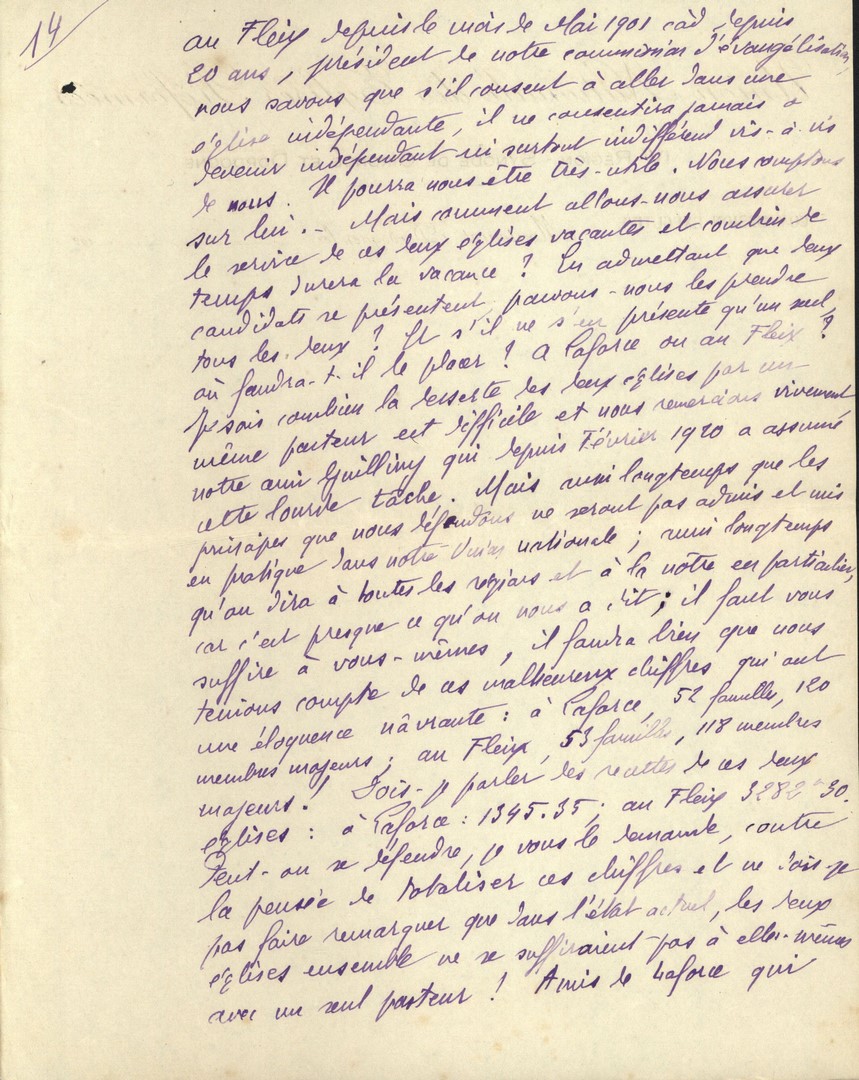 14
au Fleix depuis le mois de Mai 1901 càd depuis
20 ans, président de notre commission d'évangélisation,
nous savons que s'il consent à aller dans une
église indépendante, il ne consentira jamais à
devenir indépendant ni surtout indifférent vis-à-vis
de nous. Il pourra nous être très-utile. Nous comptons
sur lui. - Mais comment allons-nous assurer
le service de ces deux églises vacantes et combien de
temps durera la vacance ? En admettant que deux
candidats se présentent, pouvons-nous les prendre
tous les deux ? Et s'il ne s'en présente qu'un seul,
où faudra-t-il le placer ? A Laforce ou au Fleix ?
Je sais combien la desserte des deux églises par un
même pasteur est difficile et nous remercions vivement
notre ami Guilliny qui depuis Février 1920 a assumé
cette lourde tâche. Mais aussi longtemps que les
principes que nous défendons ne seront pas admis et mis
en pratique dans notre Union nationale ; aussi longtemps
qu'on dira à toutes les régions et à la nôtre en particulier,
car c'est presque ce qu'on nous a dit ; il faut vous
suffire à vous-mêmes, il faudra bien que nous
tenions compte de ces malheureux chiffres qui ont
une éloquence nâvrante : à Laforce, 52 familles, 120
membres majeurs ; au Fleix, 53 familles, 118 membres
majeurs ! Dois-je parler des recettes de ces deux
églises : à Laforce : 1345.35 ; au Fleix 3282 30.
Peut-on se défendre, je vous le demande, contre
la pensée de totaliser ces chiffres et ne dois-je
pas faire remarquer que dans l'état actuel, les deux
églises ensemble ne se suffiraient pas à elles-mêmes
avec un seul pasteur ! Amis de Laforce qui